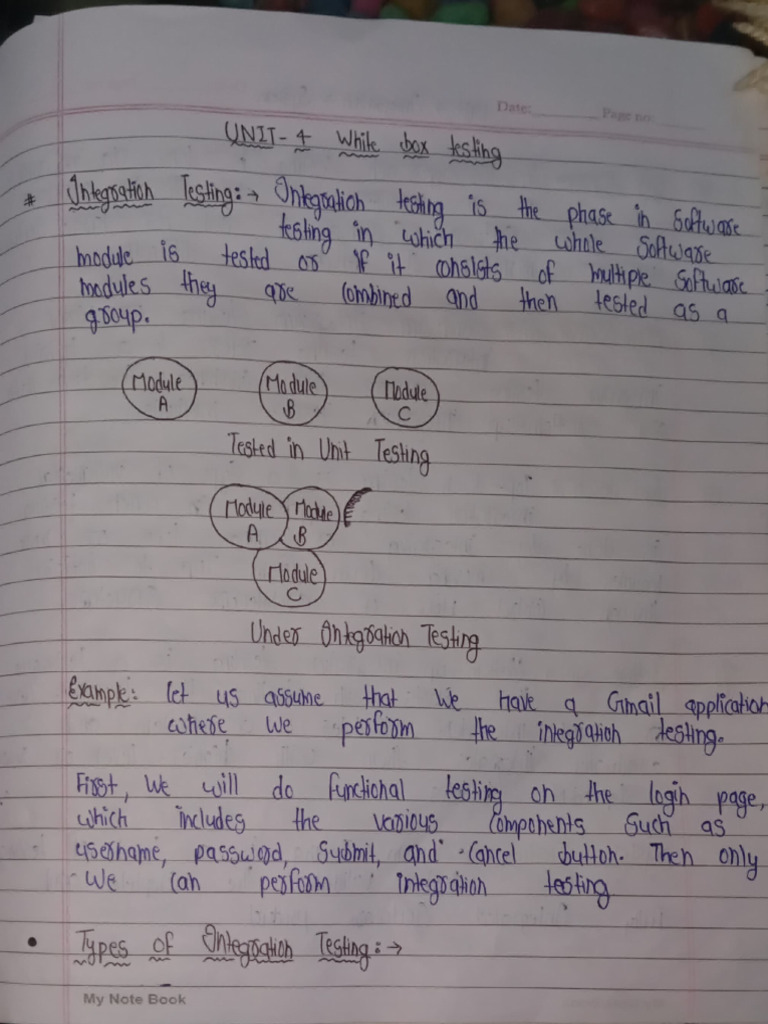 Date: Page no:
UNIT-4 White box testing
# Integration Testing:→ Integration testing is the phase in Software
testing in which the whole Software
module is tested or if it consists of multiple Software
modules they are combined and then tested as a
group.
Module A
Module B
Module C
Tested in Unit Testing
Module A
Module B
Module C
Under Integration Testing
Example: let us assume that We have a Gmail application
where we perform the integration testing.
First, We will do functional testing on the login page,
which includes the various Components Such as
username, password, Submit, and Cancel button. Then only
We can perform integration testing
• Types of Integration Testing:→
My Note Book